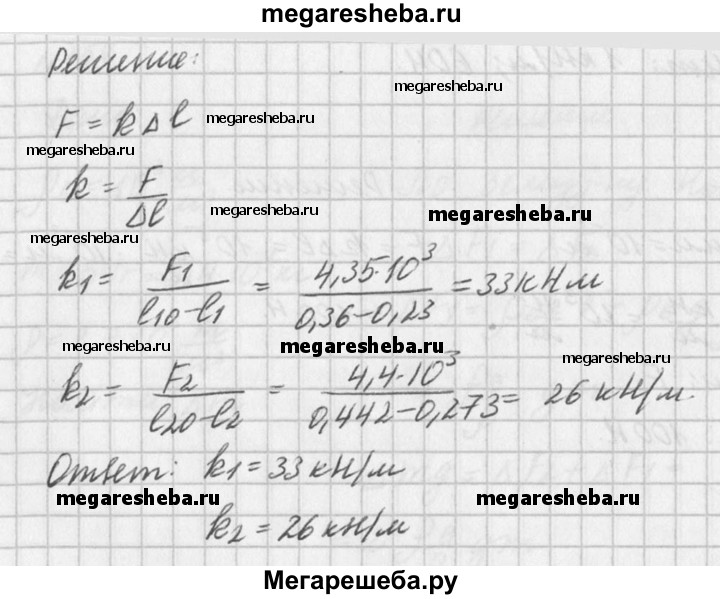 megaresheba.ru
Решение:
megaresheba.ru
F = kΔl megaresheba.ru
megaresheba.ru
k = F/Δl
megaresheba.ru megaresheba.ru
megaresheba.ru
k₁ = F₁/(l₁₀-l₁) = 4,35·10³/(0,36-0,23) = 33кНм
megaresheba.ru megaresheba.ru megaresheba.ru
k₂ = F₂/(l₂₀-l₂) = 4,4·10³/(0,442-0,273) = 26 кН/м.
Ответ: k₁ = 33 кН/м
megaresheba.ru megaresheba.ru
k₂ = 26 кН/м
Мегарешеба.ру